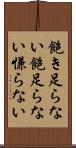 飽き足らな
い飽足らな
い慊らない